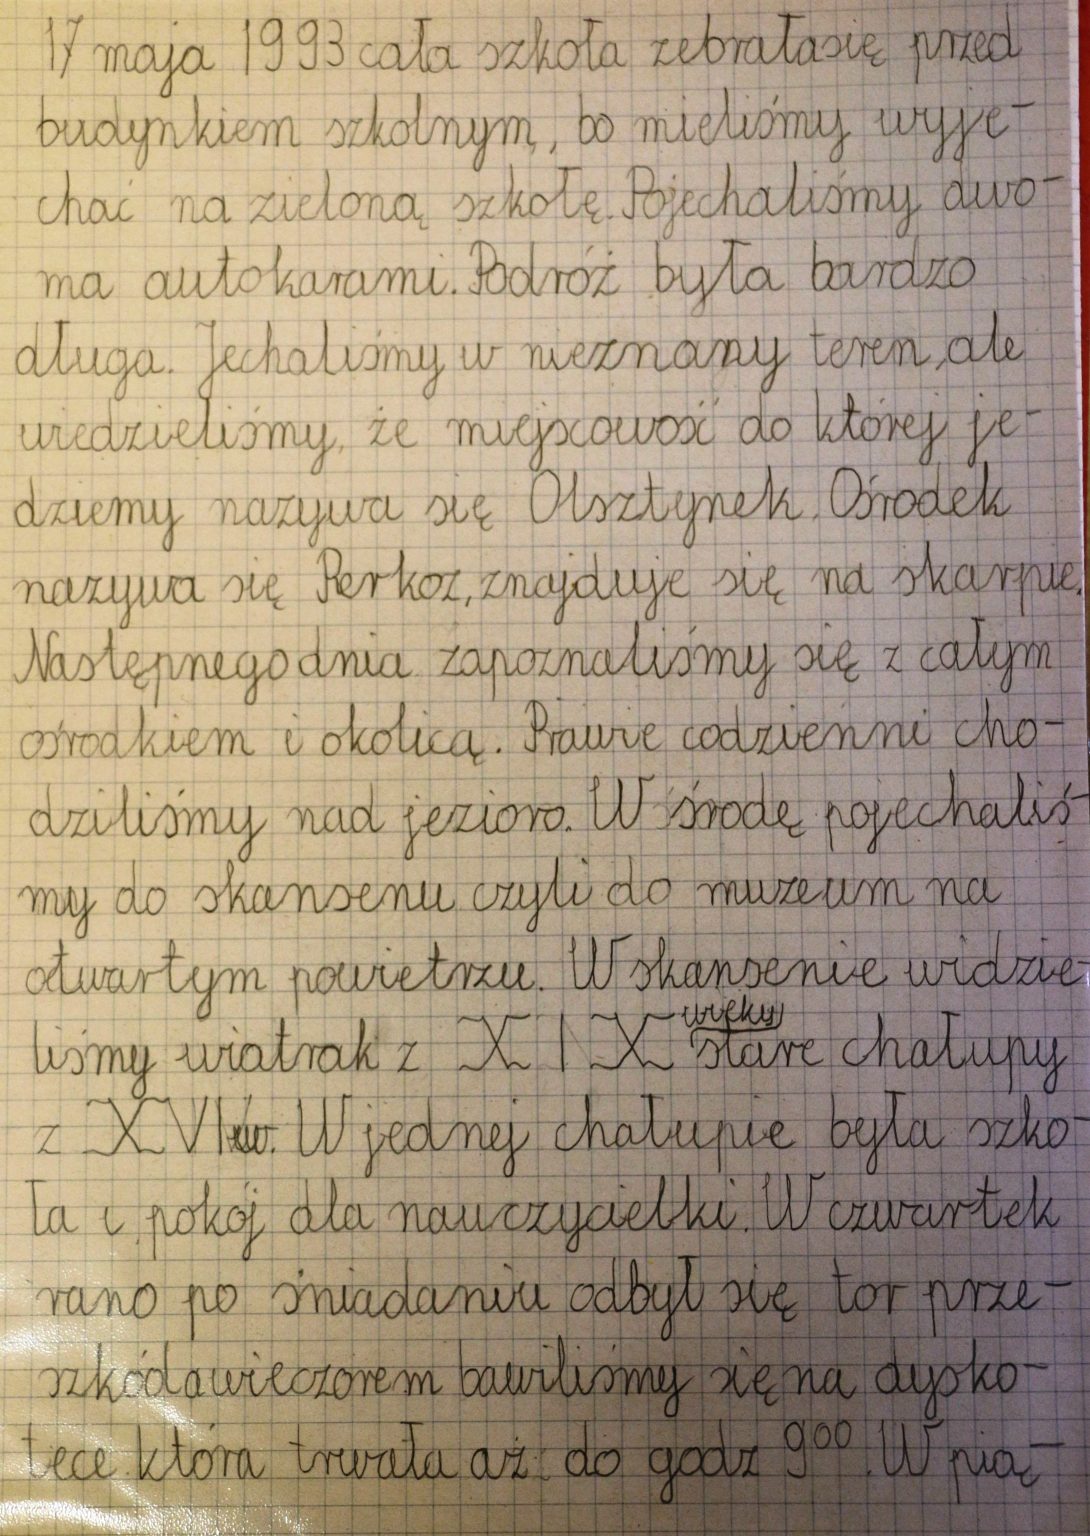 17 maja 1993 cała szkoła zebrała się przed
budynkiem szkolnym, bo mieliśmy wyje-
chać na zieloną szkołę. Pojechaliśmy dwo-
ma autokarami. Podróż była bardzo
długa. Jechaliśmy w nieznany teren, ale
wiedzieliśmy, że miejscowość do której je-
dziemy nazywa się Olsztynek. Ośrodek
nazywa się Perkoz, znajduje się na skarpie.
Następnego dnia zapoznaliśmy się z całym
ośrodkiem i okolicą. Prawie codzienni cho-
dziliśmy nad jezioro. W środę pojechaliś-
my do skansenu czyli do muzeum na
otwartym powietrzu. W skansenie widzie-
wieku
liśmy wiatrak z XIX stare chałupy
z XVI w. W jednej chałupie była szko-
ła i pokój dla nauczycielki. W czwartek
rano po śniadaniu odbył się tor prze-
szkód a wieczorem bawiliśmy się na dysko-
tece która trwała aż do godz 9⁰⁰. W pią-